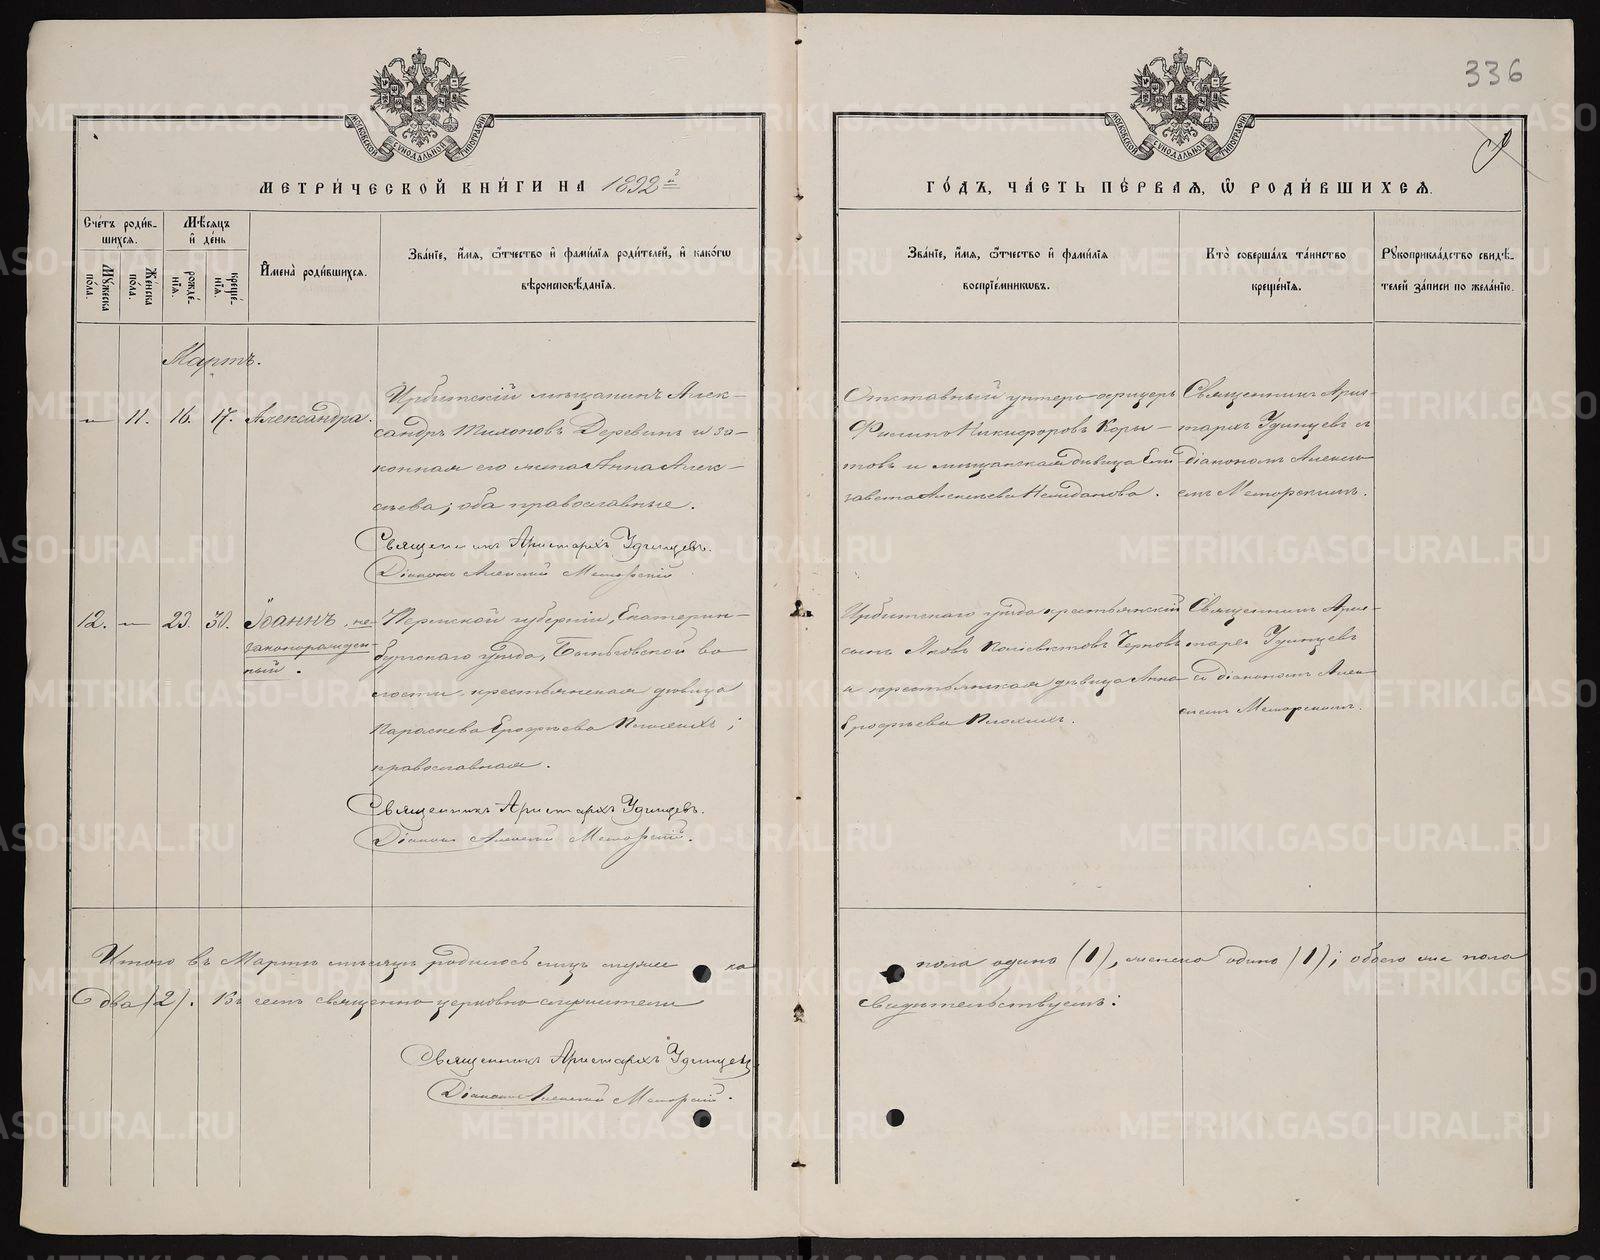 336
МОСКОВСКОЙ СѴНОДАЛЬНОЙ ТИПОГРАФІИ
МОСКОВСКОЙ СѴНОДАЛЬНОЙ ТИПОГРАФІИ
МЕТРИ́ЧЕСКОЙ КНИ́ГИ НА 1892 г
ГО́ДЪ, ЧА́СТЬ ПЕ́РВАЯ, Ѿ РОДИ́ВШИХСЯ.
Сче́тъ роди́в-
шихся.
Мѣ́сяцъ
и҆ де́нь
Мꙋ́жеска
по́ла.
Же́нска
по́ла.
рожде́-
нїя.
креще́-
нїя.
И҆мена̀ роди́вшихся.
Зва́нїе, и҆́мя, ѻ҆́тчество и҆ фами́лїя роди́телей, и҆ како́гѡ
вѣроисповѣ́данїя.
Зва́нїе, и҆́мя, ѻ҆́тчество и҆ фами́лїя
воспрїе́мникѡвъ.
Кто̀ соверша́лъ та́инство
креще́нїя.
Рꙋкоприкла́дство свидѣ́-
телей за́писи по жела́нїю.
Мартъ.
— 11. 16. 17. Александра.
Ирбитскій мѣщанинъ Алек-
сандръ Тихоновъ Деревинъ и за-
конная его жена Анна Алек-
сѣева; оба православные.
Священникъ Аристархъ Удинцевъ.
Діаконъ Алексій Меморскій
Отставный унтеръ-офицеръ
Филиппъ Никифоровъ Коры-
товъ и мѣщанская дѣвица Ели
завета Алексѣева Немиданова.
Священникъ Арис-
тархъ Удинцевъ съ
діакономъ Алексі-
емъ Меморскимъ.
12. — 23. 30. Іоаннъ, не-
законорожден-
ный.
Пермской губерніи, Екатерин-
бургскаго уѣзда, волости, крестьянская дѣвица
Параскева Ерофѣева Плохихъ;
православная.
Священникъ Аристархъ Удинцевъ.
Діаконъ Алексій Меморскій.
Ирбитскаго уѣзда крестьянскій
сынъ Яковъ Поліевктовъ Черновъ
и крестьянская дѣвица Анна
Ерофѣева Плохихъ.
Священникъ Арис-
тархъ Удинцевъ
съ діакономъ Алек-
сіемъ Меморскимъ.
Итого въ Мартѣ мѣсяцѣ родилось лицъ мужес ка
пола одинъ (1), женска одинъ (1); обоего же пола
два (2). Въ семъ священно-церковно-служители
свидѣтельствуемъ:
Священникъ Аристархъ Удинцевъ
Діаконъ Алексій Меморскій.
METRIKI.GASO-URAL.RU